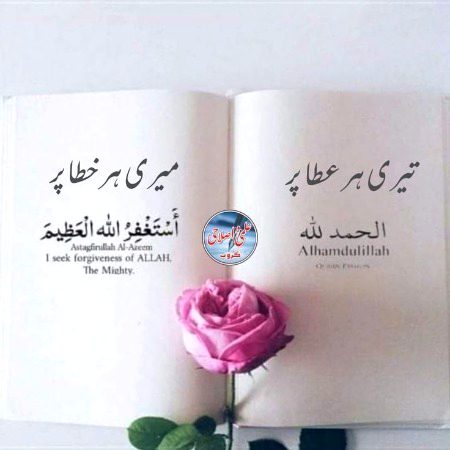 تیری ہر عطا پر
الحمد للہ
Alhamdulillah
میری ہر خطا پر
أَسْتَغْفِرُ اللهَ الْعَظِيمَ
Astagfirullah Al-Azeem
I seek forgiveness of ALLAH,
The Mighty.
اصلاحی
گروپ